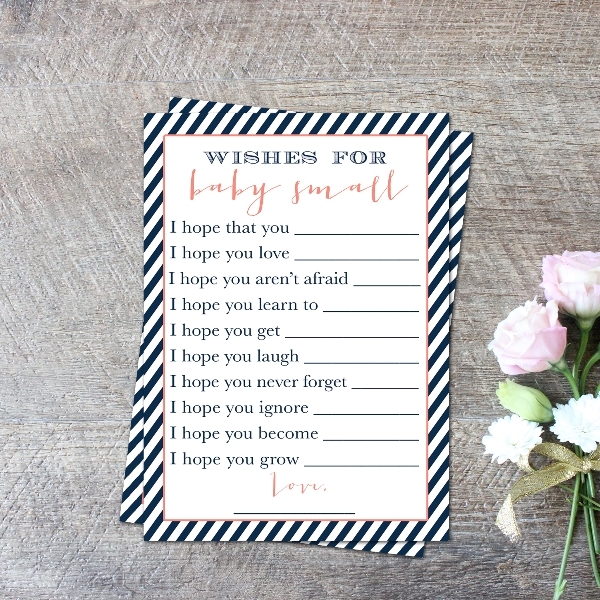 WISHES FOR
baby small
I hope that you
I hope you love
I hope you aren't afraid
I hope you learn to
I hope you get
I hope you laugh
I hope you never forget
I hope you ignore
I hope you become
I hope you grow
Love,